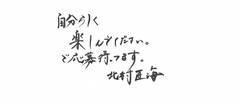 自分らしく
楽しんでください。
ご応募待ってます。
北村匠海